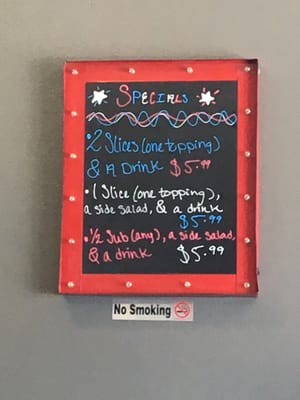 SPECIALS
•2 Slices (one topping)
& A Drink $5.99
•1 Slice (one topping),
a side salad, & a drink
$5.99
•½ Sub (any), a side salad,
& a drink $5.99
No Smoking